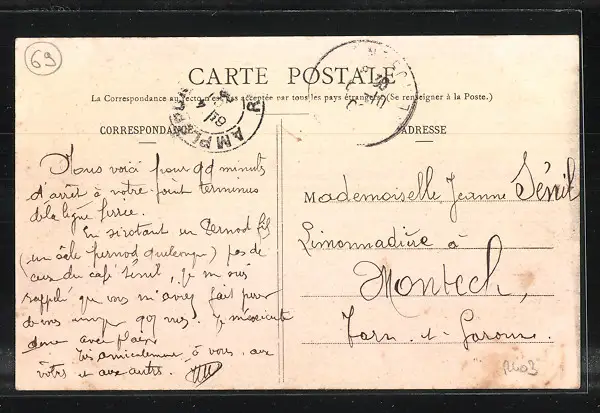 69
CARTE POSTALE
La Correspondance au recto n'est pas acceptée par tous les pays étrangers. (Se renseigner à la Poste.)
CORRESPONDANCE
Nous voici pour 99 minutes
d'arrêt à votre point terminus
de la ligne ferrée.
En sirotant un Pernod fils
(un sale pernod quelconque) pas de
ceux du café Sénil, je me suis
rappelé que vous m'avez fait promettre
de vous envoyer qq vues. Je m'exécute
donc avec plaisir
Très amicalement à vous, aux
vôtres et aux autres.
AMPLEPUIS
R
ADRESSE
Mademoiselle Jeanne Sénil
Limonnadière à
Montech,
Tarn-et-Garonne.